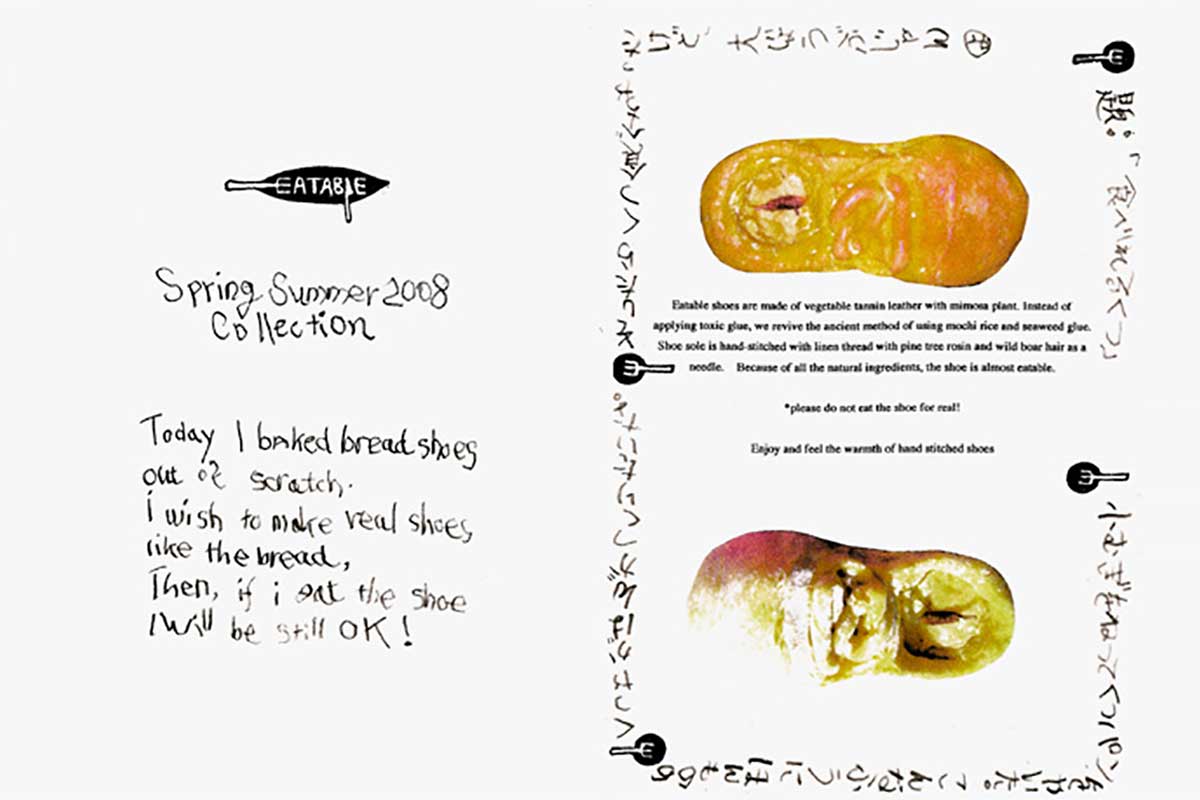 EATABLE
Spring Summer 2008
Collection
Today I baked bread shoes
out of scratch.
i wish to make real shoes
like the bread,
Then, if i eat the shoe
I will be still OK!
題:「食べれるくつ」
小むぎをねってくつパン
をやいた。こんなふうにほんもの
Eatable shoes are made of vegetable tannin leather with mimosa plant. Instead of
applying toxic glue, we revive the ancient method of using mochi rice and seaweed glue.
Shoe sole is hand-stitched with linen thread with pine tree rosin and wild boar hair as a
needle. Because of all the natural ingredients, the shoe is almost eatable.
*please do not eat the shoe for real!
Enjoy and feel the warmth of hand stitched shoes